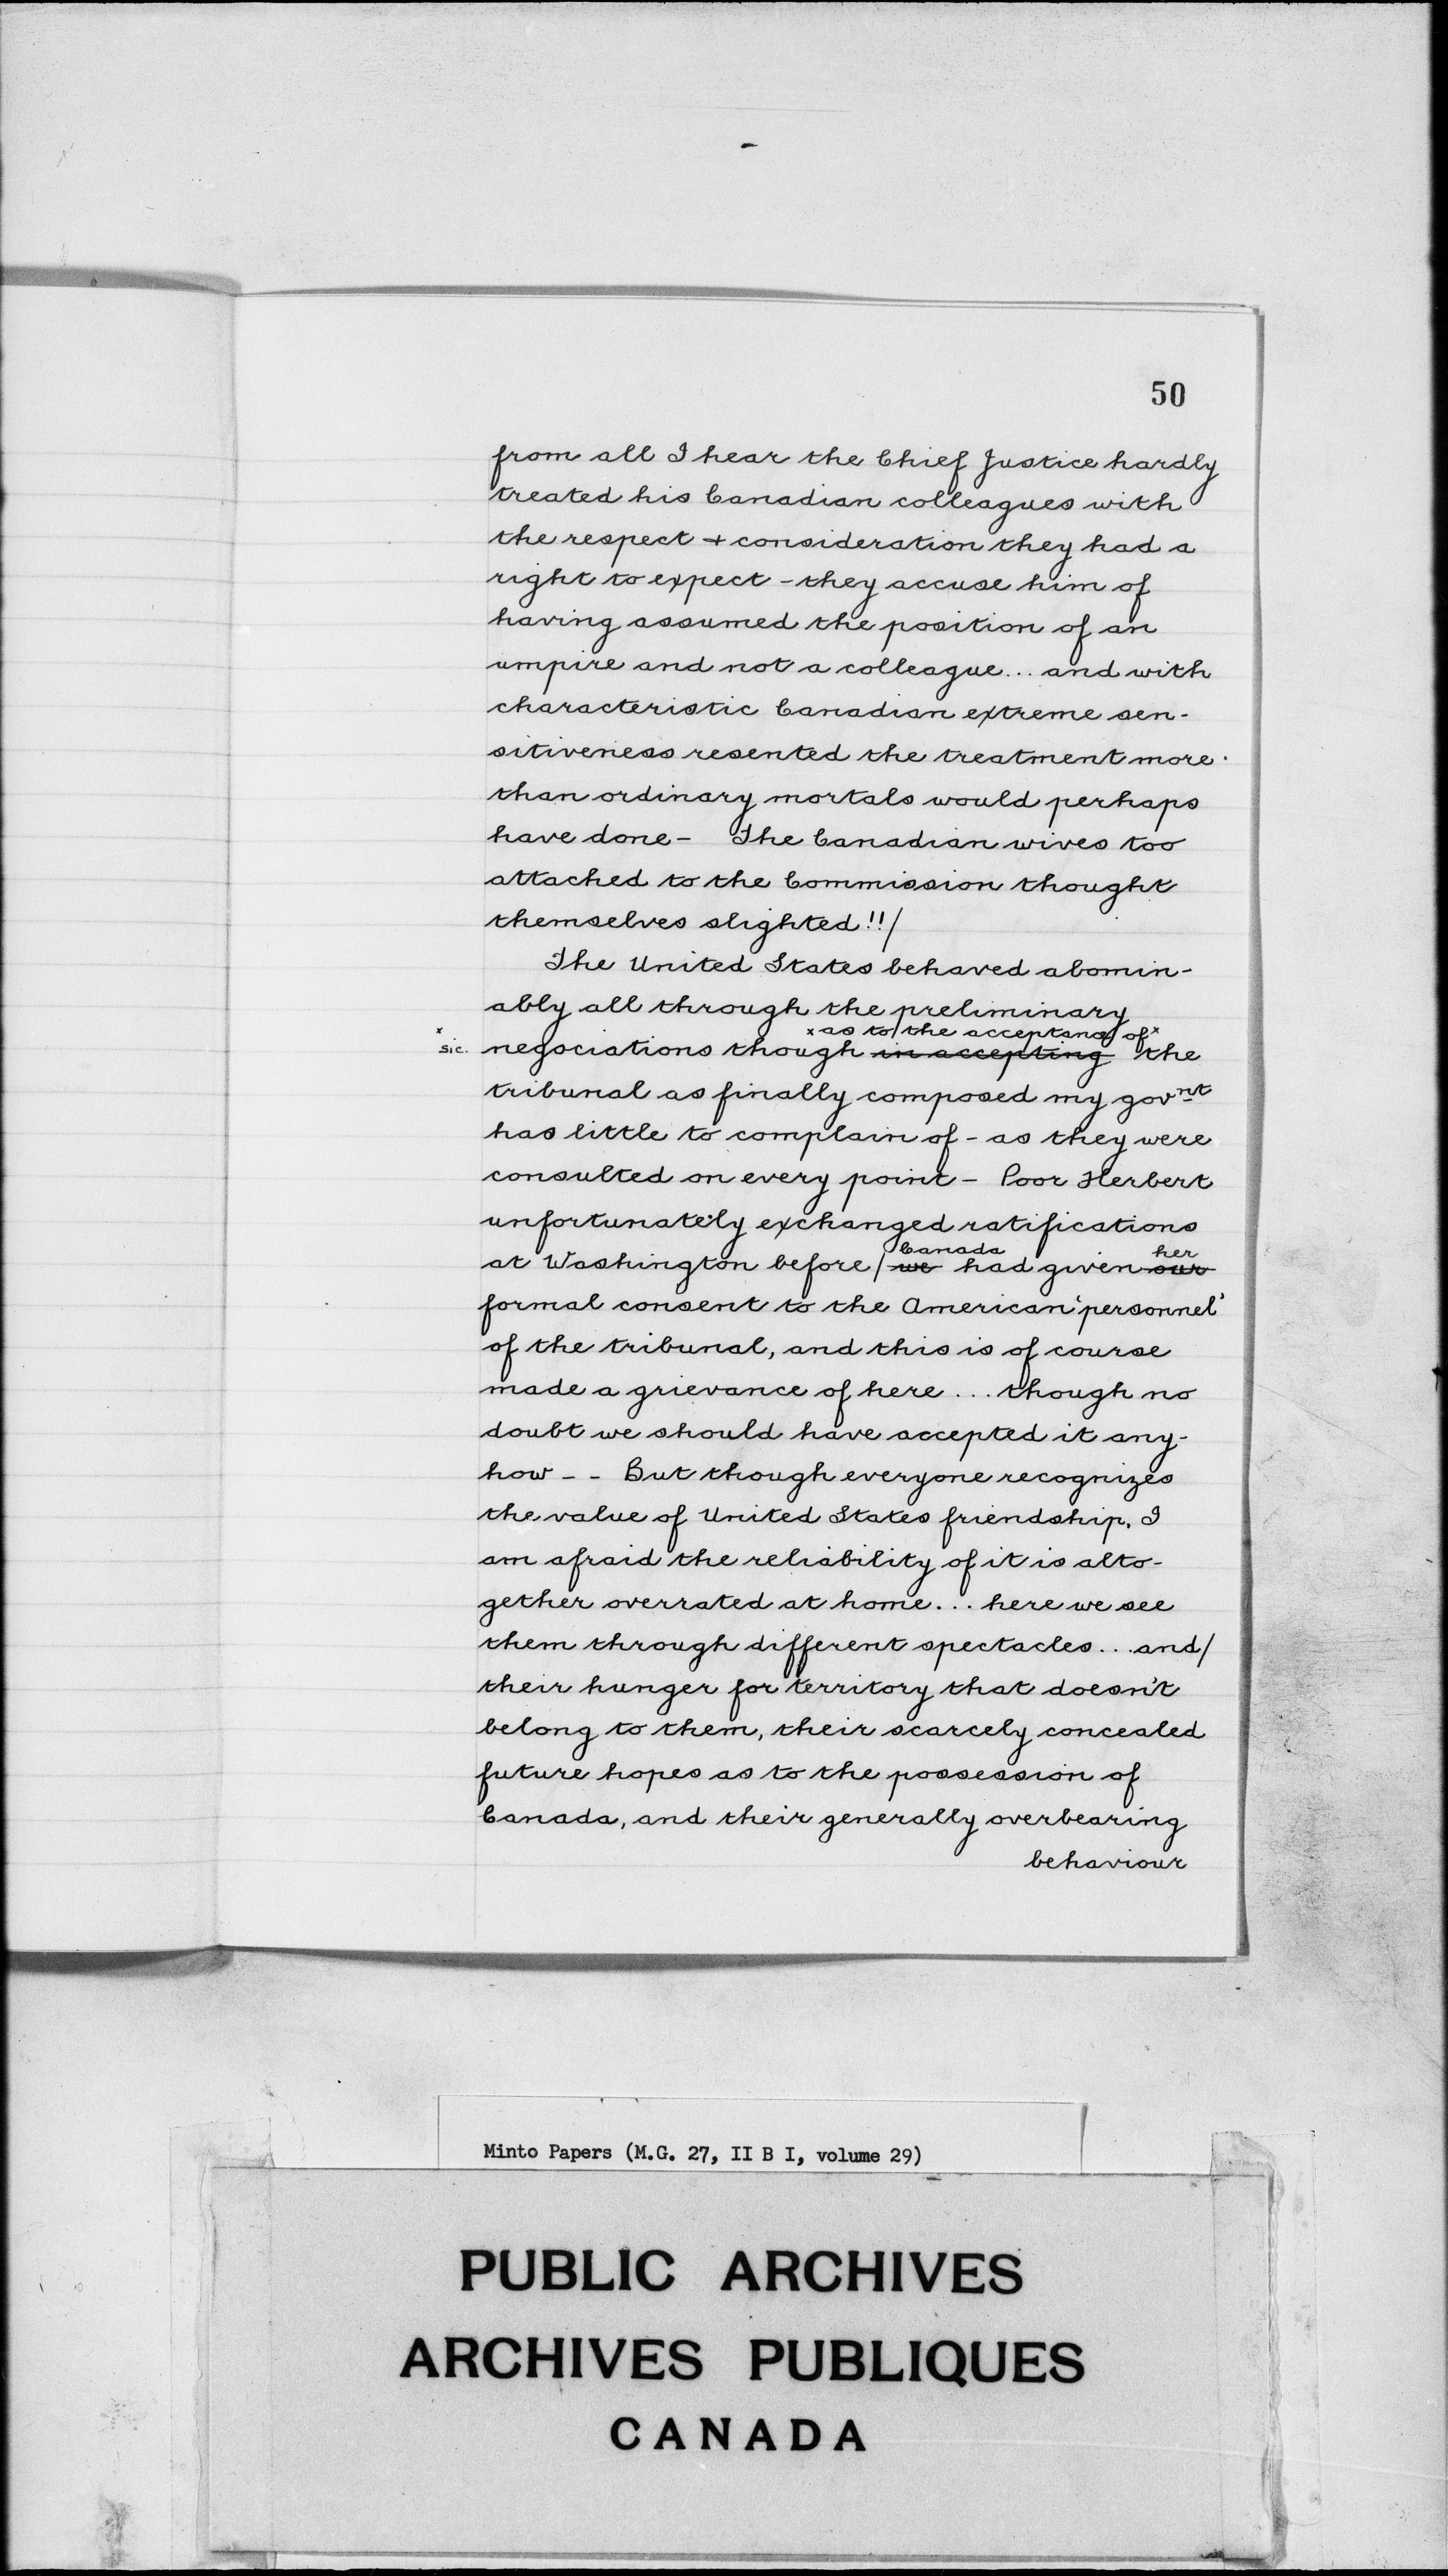 50
from all I hear the Chief Justice hardly
treated his Canadian colleagues with
the respect + consideration they had a
right to expect - they accuse him of
having assumed the position of an
umpire and not a colleague... and with
characteristic Canadian extreme sen-
sitiveness resented the treatment more
than ordinary mortals would perhaps
have done - The Canadian wives too
attached to the Commission thought
themselves slighted!!/
The United States behaved abomin-
ably all through the preliminary
x as to/the acceptance of x
x sic. negociations though in accepting the
tribunal as finally composed my govnt
has little to complain of - as they were
consulted on every point - Poor Herbert
unfortunately exchanged ratifications
Canada her
at Washington before/ we had given our
formal consent to the American 'personnel'
of the tribunal, and this is of course
made a grievance of here... though no
doubt we should have accepted it any-
how - - But though everyone recognizes
the value of United States friendship, I
am afraid the reliability of it is alto-
gether overrated at home... here we see
them through different spectacles... and/
their hunger for territory that doesn't
belong to them, their scarcely concealed
future hopes as to the possession of
Canada, and their generally overbearing
behaviour
Minto Papers (M.G. 27, II B I, volume 29)
PUBLIC ARCHIVES
ARCHIVES PUBLIQUES
CANADA